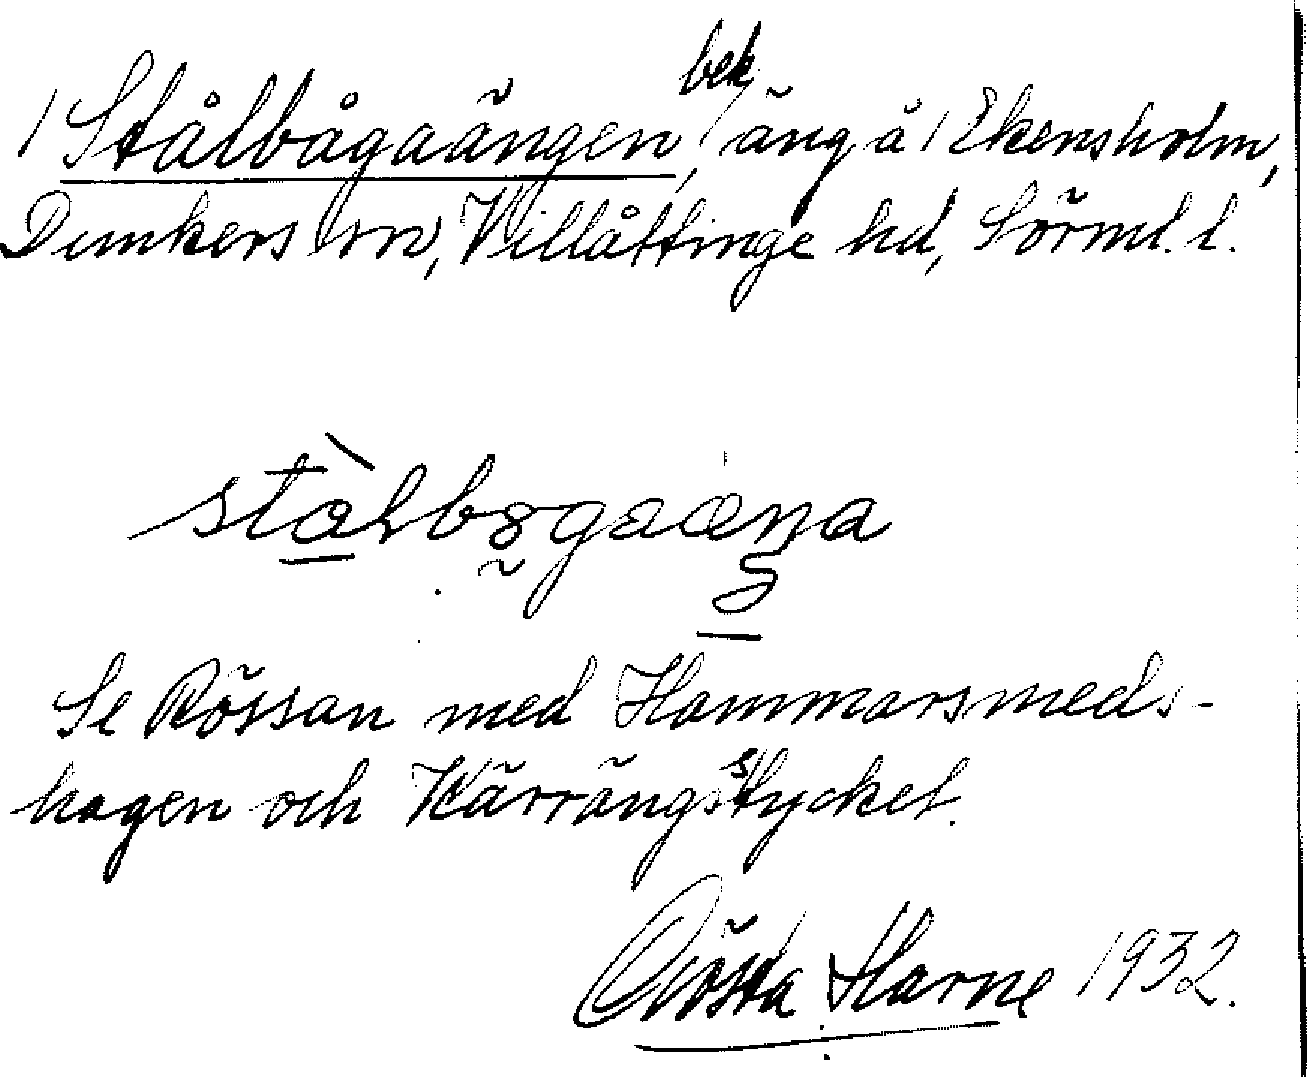 / Stålbågaängen, bek / äng å / Ekensholm,
Dunkers sn, Villåttinge hd, Sörml. l.
Se Rössan med Hammarsmeds-
hagen och Kärrängsstycket.
Gösta Harne 1932.